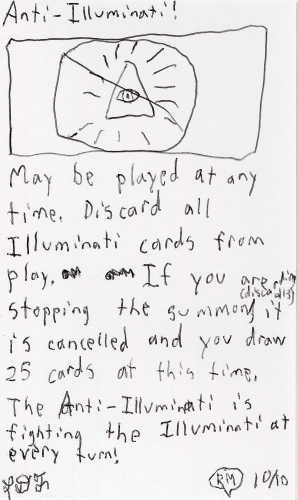 Anti-Illuminati!
May be played at any
time. Discard all
Illuminati cards from
play. If you are
stopping the summons it
is cancelled and you draw
25 cards at this time.
The Anti-Illuminati is
fighting the Illuminati at
every turn!
RM 10/10